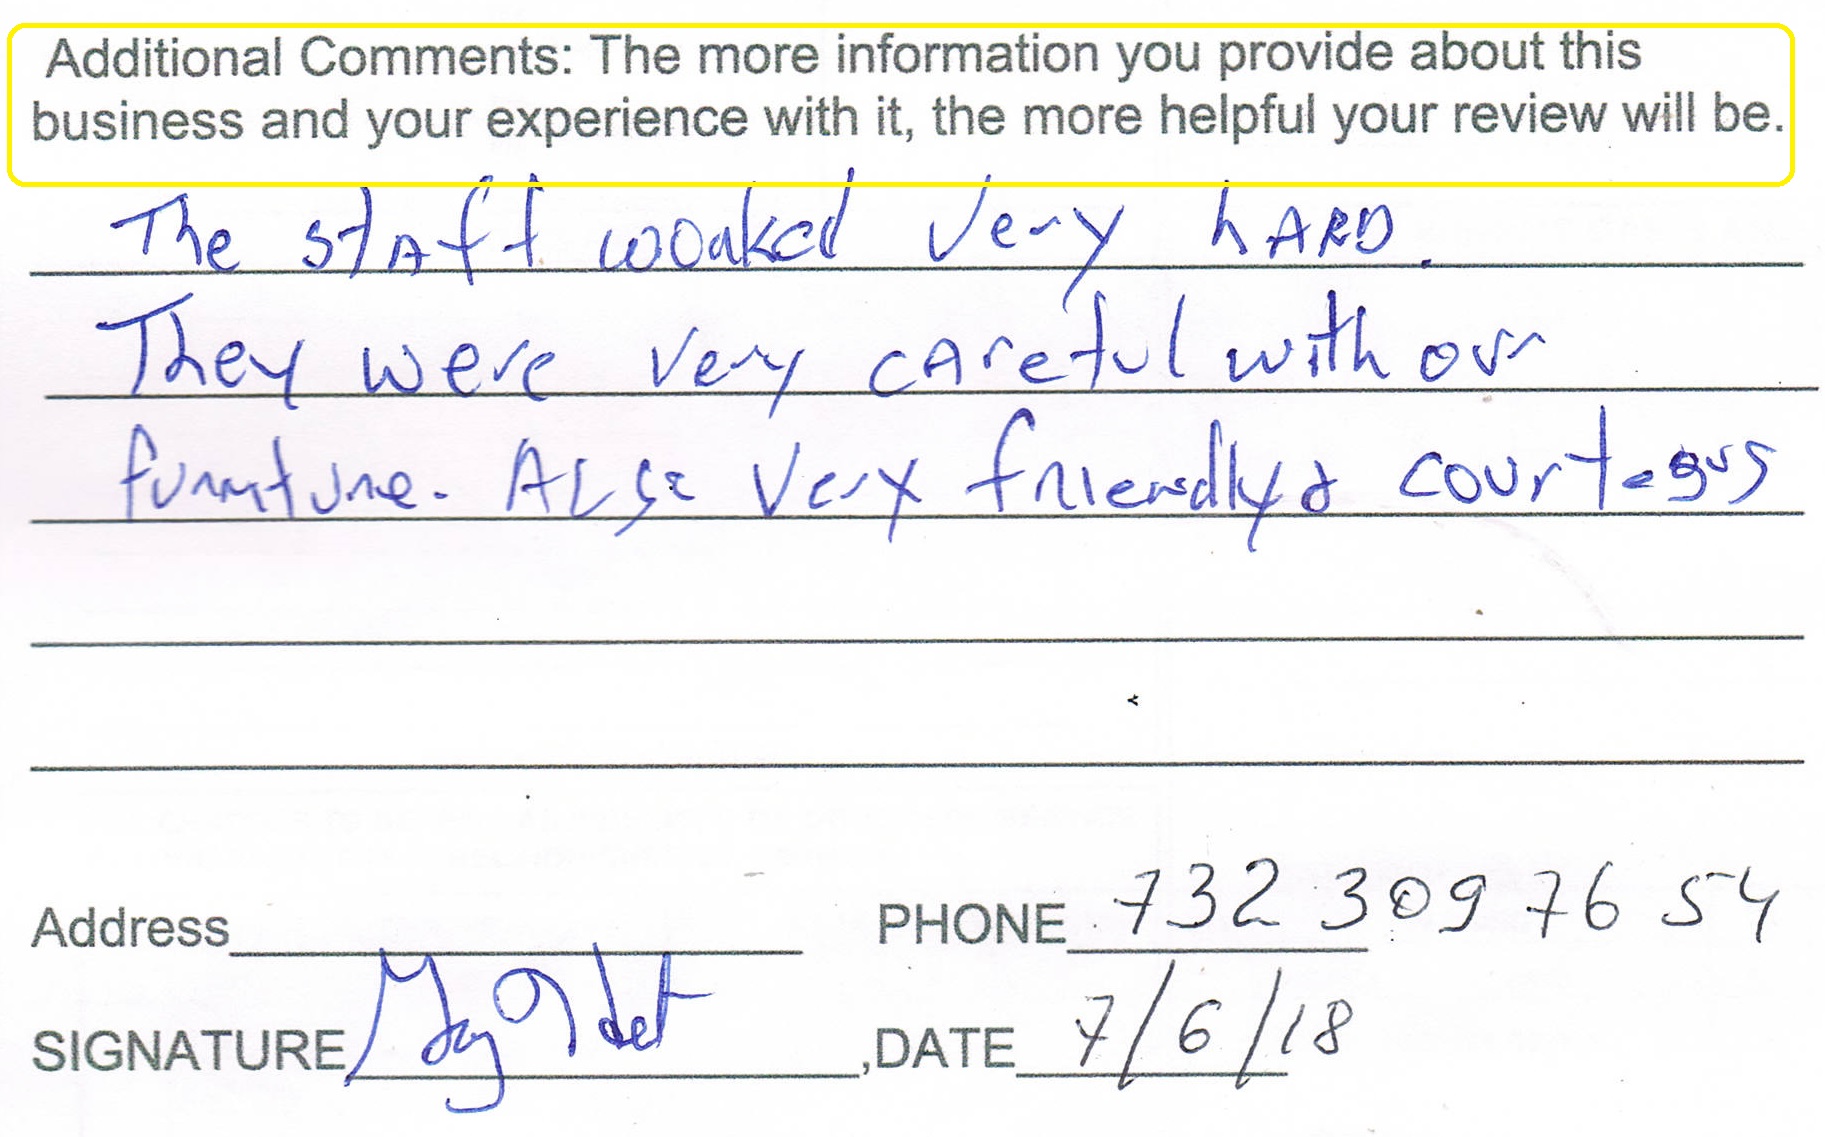 Additional Comments: The more information you provide about this
business and your experience with it, the more helpful your review will be.
The staff worked very hARD.
They were very careful with our
furniture. ALSo very friendly & courteous
Address
PHONE 732 309 76 54
SIGNATURE
,DATE 7/6/18